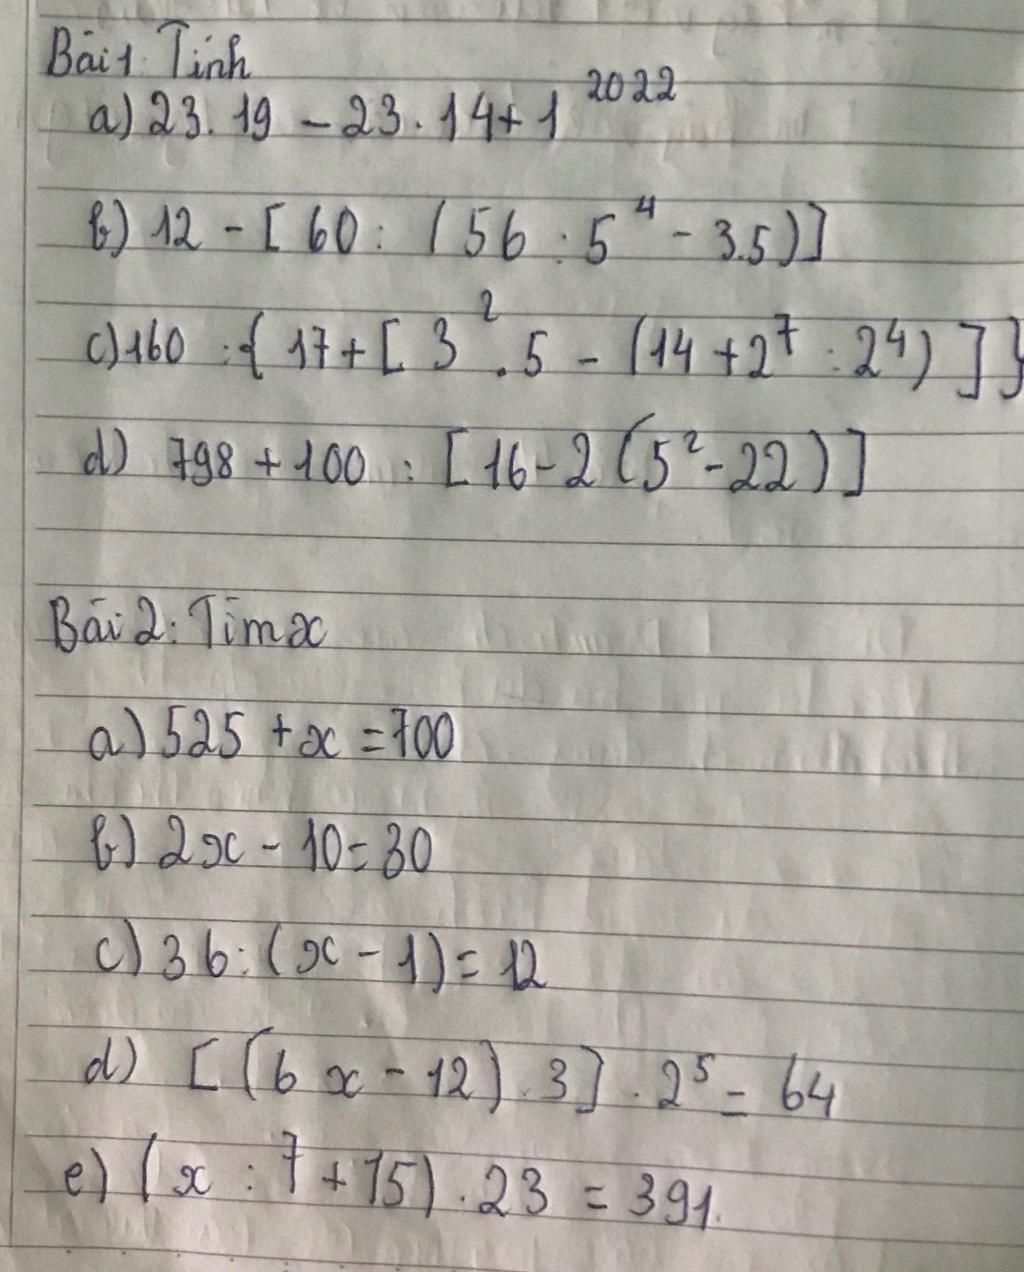 Bài 1: Tính
a) 23. 19 - 23 . 14 + 1²⁰²²
b) 12 - [ 60 : ( 56 : 5⁴ - 3.5 ) ]
c) 160 : { 17 + [ 3² . 5 - ( 14 + 2⁷ : 2⁴ ) ] }
d) 798 + 100 : [ 16 - 2 ( 5² - 22 ) ]
Bài 2: Tìm x
a) 525 + x = 700
b) 2x - 10 = 30
c) 36 : ( x - 1 ) = 12
d) [ ( 6 x - 12 ) . 3 ] . 2⁵ = 64
e) ( x : 7 + 15 ) . 23 = 391.